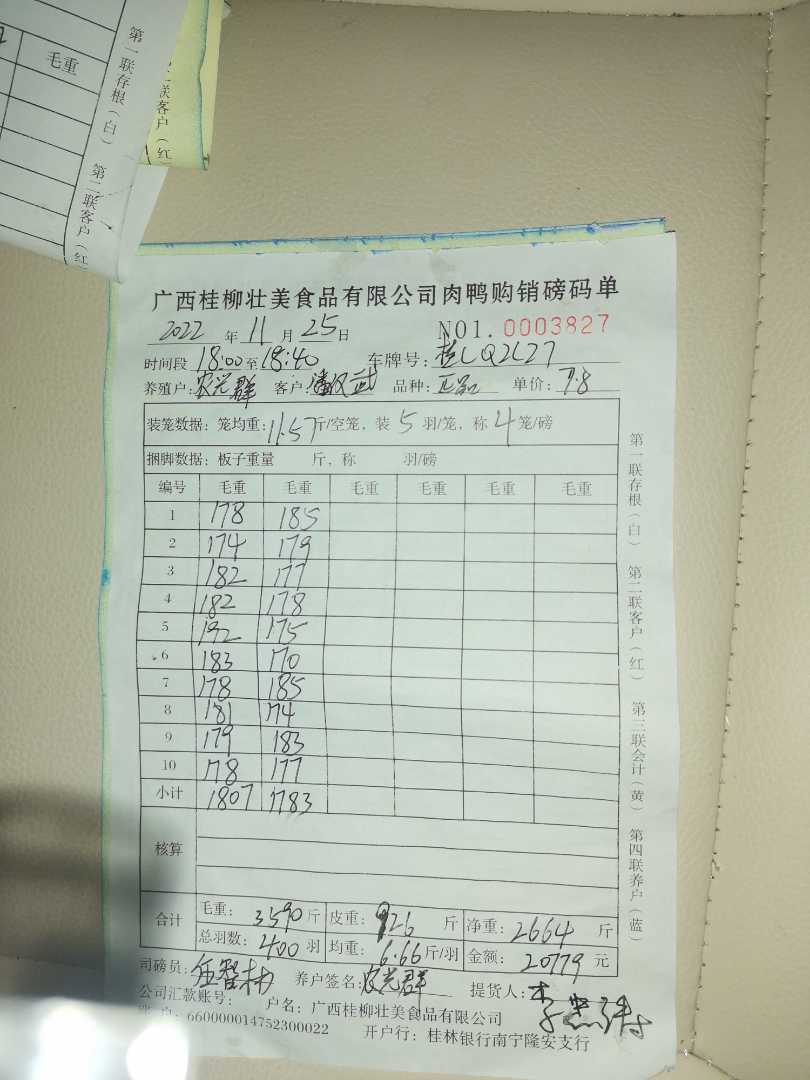 毛重
第一联存根(白)
第二联客户(红
联客户(红
广西桂柳壮美食品有限公司肉鸭购销磅码单
2022 年 11 月 25 日 NO1. 0003827
时间段 18:00 至 18:40 车牌号: 桂LQ2L27
养殖户: 农光群 客户: 潘汉武 品种: 正品 单价: 7.8
装笼数据: 笼均重: 11.57 斤/空笼, 装 5 羽/笼, 称 4 笼/磅
捆脚数据: 板子重量 斤, 称 羽/磅
编号 毛重 毛重 毛重 毛重 毛重 毛重
1 178 185
2 174 179
3 182 177
4 182 178
5 192 175
6 183 170
7 178 185
8 181 174
9 179 183
10 178 177
小计 1807 1783
核算
合计 毛重: 3590 斤 皮重: 926 斤 净重: 2664 斤
总羽数: 400 羽 均重: 6.66 斤/羽 金额: 20779 元
司磅员: 养户签名: 农光群 提货人:
公司汇款账号: 户名: 广西桂柳壮美食品有限公司
账户: 660000014752300022 开户行: 桂林银行南宁隆安支行
第一联存根(白) 第二联客户(红) 第三联会计(黄) 第四联养户(蓝)